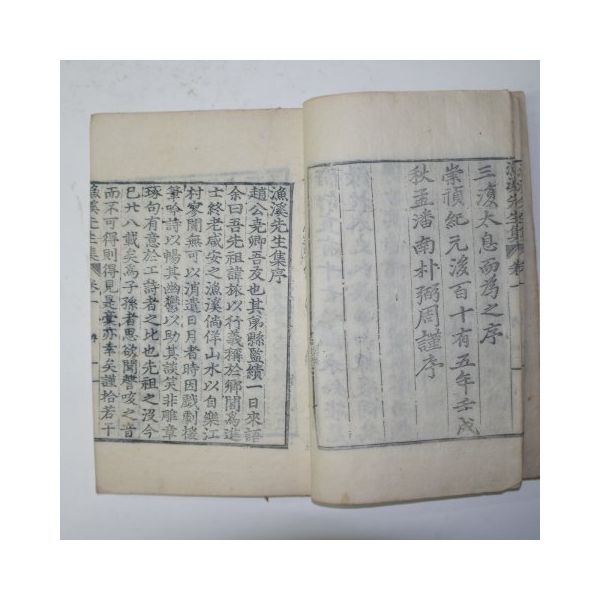 三復太息而爲之序
崇禎紀元後百十有五年壬戌
秋孟潘南朴弼周謹序
漁溪先生集序
趙公堯卿吾友也其弟縣監續一日來語
余曰吾先祖諱旅以行義稱於鄕闇爲進
士終老咸安之漁溪倘佯山水以自樂江
村寥閴無可以消遣日月者時因戲劇捿
筆吟詩以暢其幽鬱以助其談笑非雕章
琢句有意於工詩者之比也先祖之沒今
已卄八載矣爲子孫者思欲聞謦咳之音
而不可得則得見是藁亦幸矣謹拾若干
漁溪先生集 卷一 序 一